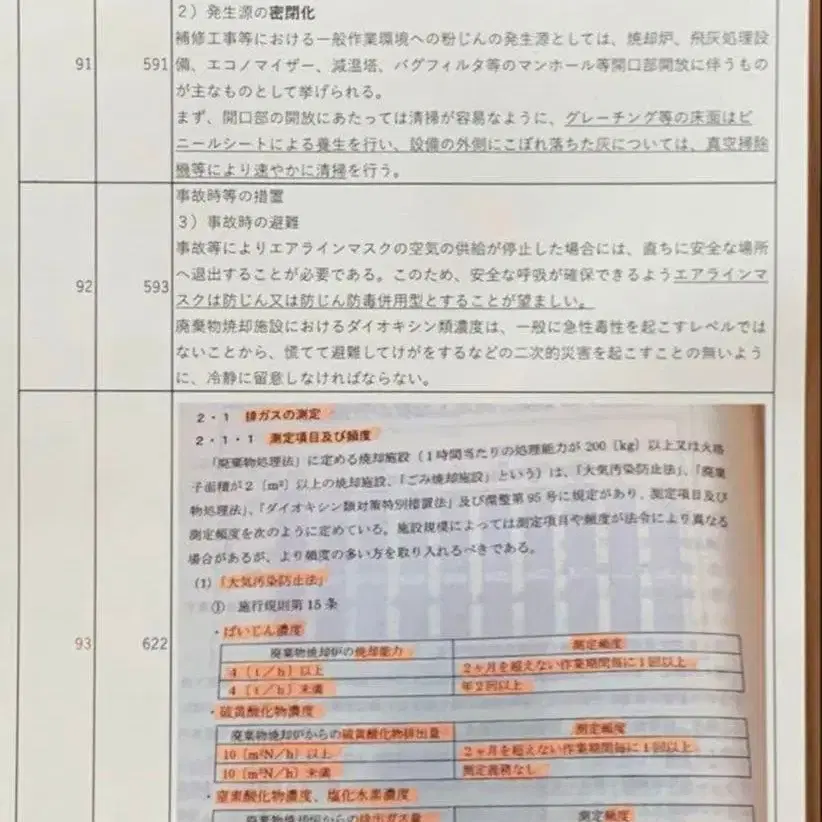 2）発生源の密閉化
91
591
補修工事等における一般作業環境への粉じんの発生源としては、焼却炉、飛灰処理設
備、エコノマイザー、減温塔、バグフィルタ等のマンホール等開口部開放に伴うもの
が主なものとして挙げられる。
まず、開口部の開放にあたっては清掃が容易なように、グレーチング等の床面はビ
ニールシートによる養生を行い、設備の外側にこぼれ落ちた灰については、真空掃除
機等により速やかに清掃を行う。
92
593
事故時等の措置
3）事故時の避難
事故等によりエアラインマスクの空気の供給が停止した場合には、直ちに安全な場所
へ退出することが必要である。このため、安全な呼吸が確保できるようエアラインマ
スクは防じん又は防じん防毒併用型とすることが望ましい。
廃棄物焼却施設におけるダイオキシン類濃度は、一般に急性毒性を起こすレベルでは
ないことから、慌てて避難してけがをするなどの二次的災害を起こすことの無いよう
に、冷静に留意しなければならない。
93
622
2・1 排ガスの測定
2・1・1 測定項目及び頻度
「廃棄物処理法」に定める焼却施設（1時間当たりの処理能力が200〔kg〕以上又は火格
子面積が2〔m²〕以上の焼却施設、「ごみ焼却施設」という）は、「大気汚染防止法」、「廃棄
物処理法」、「ダイオキシン類対策特別措置法」及び環整第95号に規定があり、測定項目及び
測定頻度を次のように定めている。施設規模によっては測定項目や頻度が法令により異なる
場合があるが、より頻度の多い方を取り入れるべきである。
(1)「大気汚染防止法」
① 施行規則第15条
・ばいじん濃度
廃棄物焼却炉の焼却能力 測定頻度
4〔t／h〕以上 2ヶ月を超えない作業期間毎に1回以上
4〔t／h〕未満 年2回以上
・硫黄酸化物濃度
廃棄物焼却炉からの硫黄酸化物排出量 測定頻度
10〔m³N／h〕以上 2ヶ月を超えない作業期間毎に1回以上
10〔m³N／h〕未満 測定義務なし
・窒素酸化物濃度、塩化水素濃度
廃棄物焼却炉からの排出ガス量 測定頻度